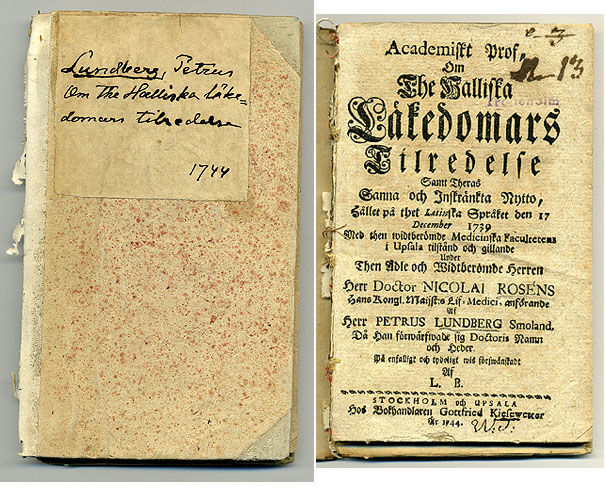 Lundberg, Petrus
Om The Halliska Läke=
domars tilredelse
1744
13
Academiskt Prof,
Om
The Halliska
Läkedomars
Tilredelse
Samt Theras
Sanna och Inskränkta Nytto,
Hållet på thet Latinska Språket den 17
December 1739
Med then widtberömde Medicinska Facultetens
i Upsala tilstånd och gillande
Under
Then Adle och Widtberömde Herren
Herr Doctor NICOLAI ROSENS
Hans Kongl. Maijst:s Lif-Medici, anförande
Af
Herr PETRUS LUNDBERG Smoland,
Då Han förwärfwade sig Doctoris Namn
och Heder.
På enfalligt och tydeligt wis förswänskadt
Af
L. B.
STOCKHOLM och UPSALA
Hos Bokhandlaren Gottfried Kiesewetter
År 1744.